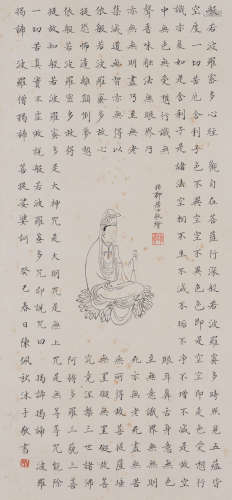 般若波羅蜜多心經 觀自在菩薩行深般若波羅蜜多時照見五蘊皆
空度一切苦厄舍利子色不異空空不異色色即是空空即是色受想行
識亦復如是舍利子是諸法空相不生不滅不垢不淨不增不減是故空
中無色無受想行識無
眼耳鼻舌身意無色
聲香味觸法無眼界乃
至無意識界無無明
亦無無明盡乃至無老
死亦無老死盡無苦
集滅道無智亦無得以
無所得故菩提薩埵
依般若波羅蜜多故心
無罣礙無罣礙故無
有恐怖遠離顛倒夢想
究竟涅槃三世諸佛
依般若波羅蜜多故得
阿耨多羅三藐三菩
提故知般若波羅蜜多是大神咒是大明咒是無上咒是無等等咒能除
一切苦真實不虛故說般若波羅蜜多咒即說咒曰 揭諦揭諦 波羅
揭諦 波羅僧揭諦 菩提娑婆訶 癸巳春日陳佩秋沐手敬書
敬繪